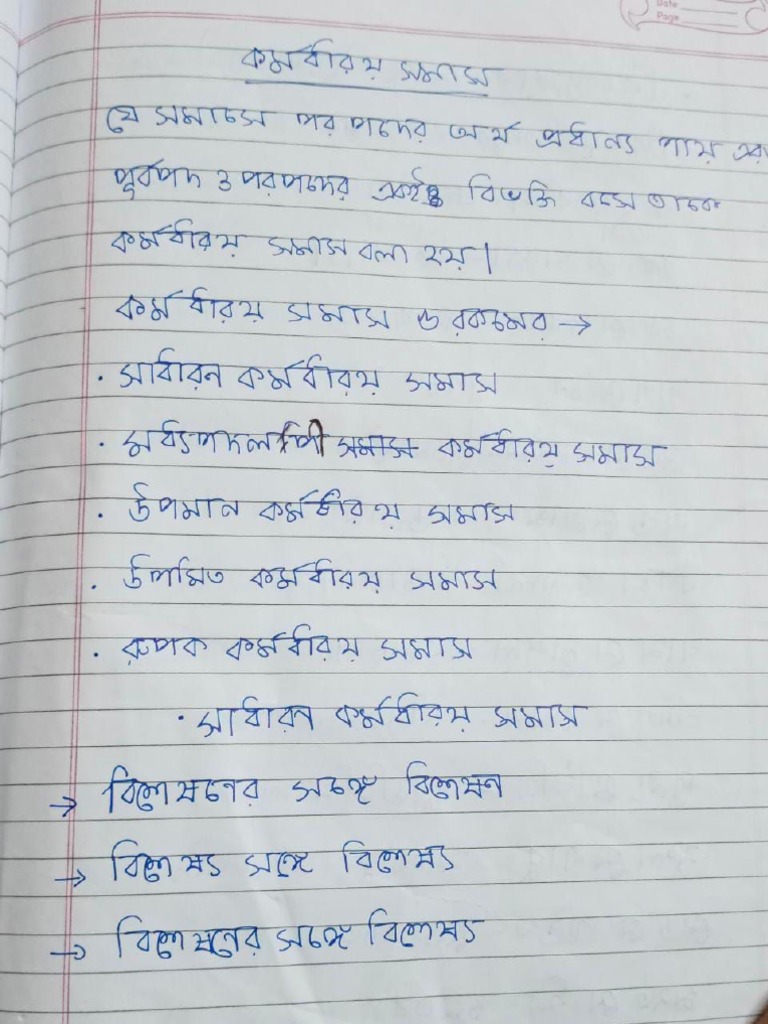 Date
Page
কর্মধারয় সমাস
যে সমাসে পর পদের অর্থ প্রধান্য পায় এবং
পূর্বপদ ও পরপদের একই বিভক্তি বসে তাকে
কর্মধারয় সমাস বলা হয়।
কর্মধারয় সমাস ৫ রকমের →
· সাধারন কর্মধারয় সমাস
· মধ্যপদলোপী সমাস কর্মধারয় সমাস
· উপমান কর্মধারয় সমাস
· উপমিত কর্মধারয় সমাস
· রুপক কর্মধারয় সমাস
· সাধারন কর্মধারয় সমাস
→ বিশেষণের সঙ্গে বিশেষণ
→ বিশেষ্য সঙ্গে বিশেষ্য
→ বিশেষনের সঙ্গে বিশেষ্য